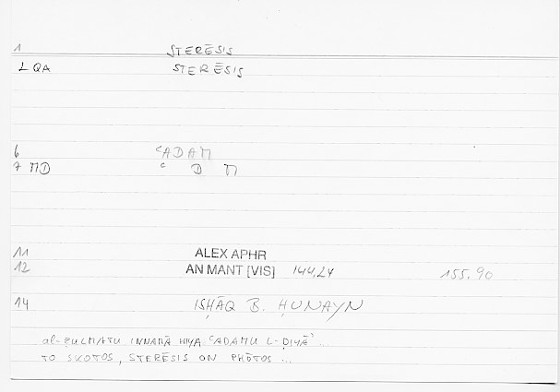 1 STERĒSIS
2 QA STERĒSIS
6 ʿADAM
7 MD ʿ D M
11 ALEX APHR
12 AN MANT [VIS] 144,24 155.90
14 ISḤĀQ B. ḤUNAYN
al-ẒULMATU INNAMĀ HIYA ʿADAMU L-ḌIYĀʾ ...
TO SKOTOS, STERĒSIS ŌN PHŌTOS ...